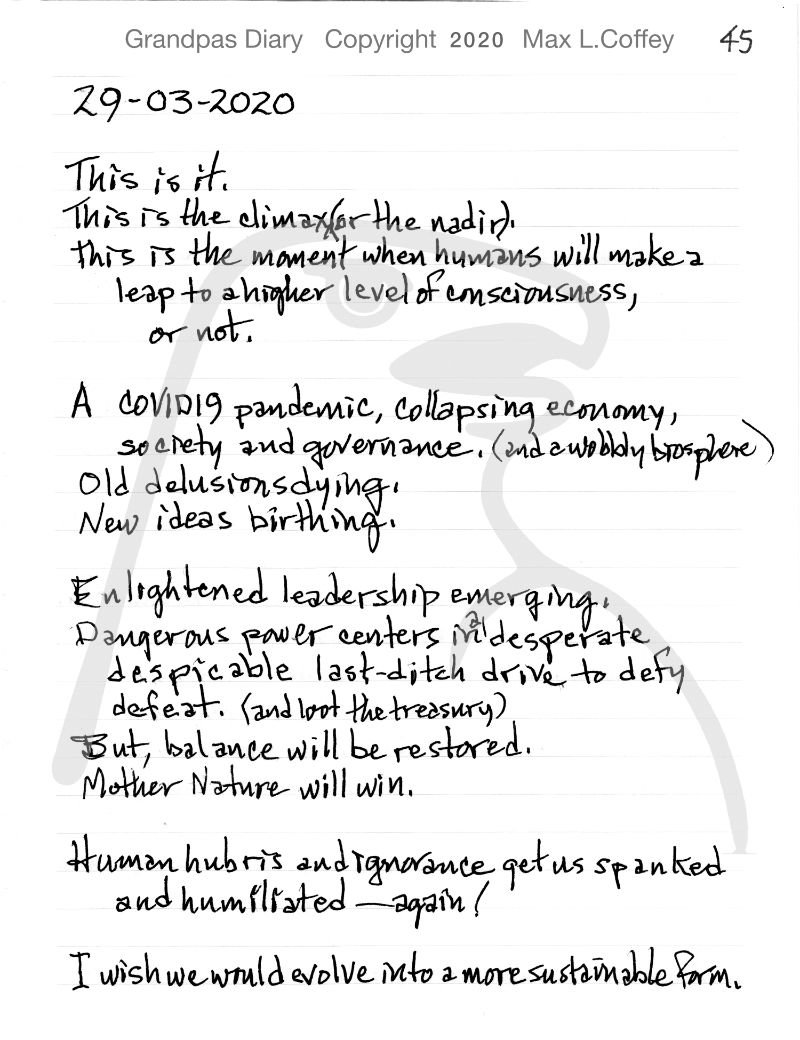 Grandpas Diary Copyright 2020 Max L.Coffey 45
29-03-2020
This is it.
This is the climax (or the nadir).
This is the moment when humans will make a
leap to a higher level of consciousness,
or not.
A COVID19 pandemic, collapsing economy,
society and governance. (and a wobbly biosphere)
Old delusions dying.
New ideas birthing.
Enlightened leadership emerging.
Dangerous power centers in a desperate
despicable last-ditch drive to defy
defeat. (and loot the treasury)
But, balance will be restored.
Mother Nature will win.
Human hubris and ignorance get us spanked
and humiliated — again!
I wish we would evolve into a more sustainable form.